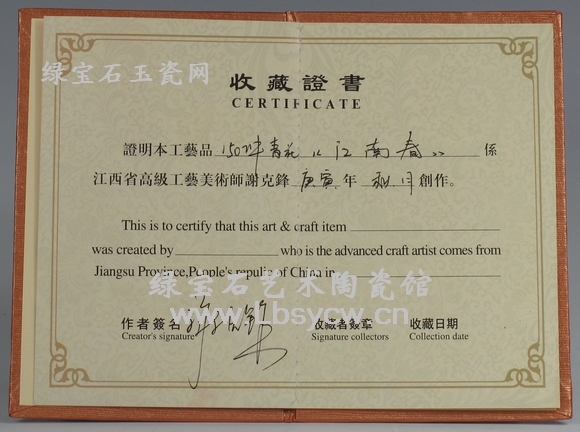 绿宝石玉瓷网
收藏證書
CERTIFICATE
證明本工藝品 150件青花《江南春》 係
江西省高級工藝美術師謝克鋒 庚寅 年 秋月 創作。
This is to certify that this art & craft item
was created by who is the advanced craft artist comes from
Jiangsu Province,People's repulic of China in
绿宝石艺术陶瓷馆
www.Lbsycw.cn
作者簽名 收藏者簽章 收藏日期
Creator's signature Signature collectors Collection date